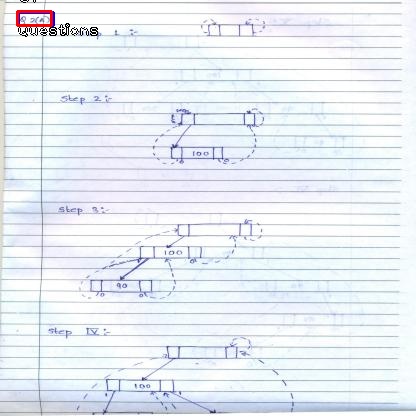 Q 2(A)
Questions
Step 1 :-
Step 2:-
100
Step 3:-
100
90
Step IV:-
100